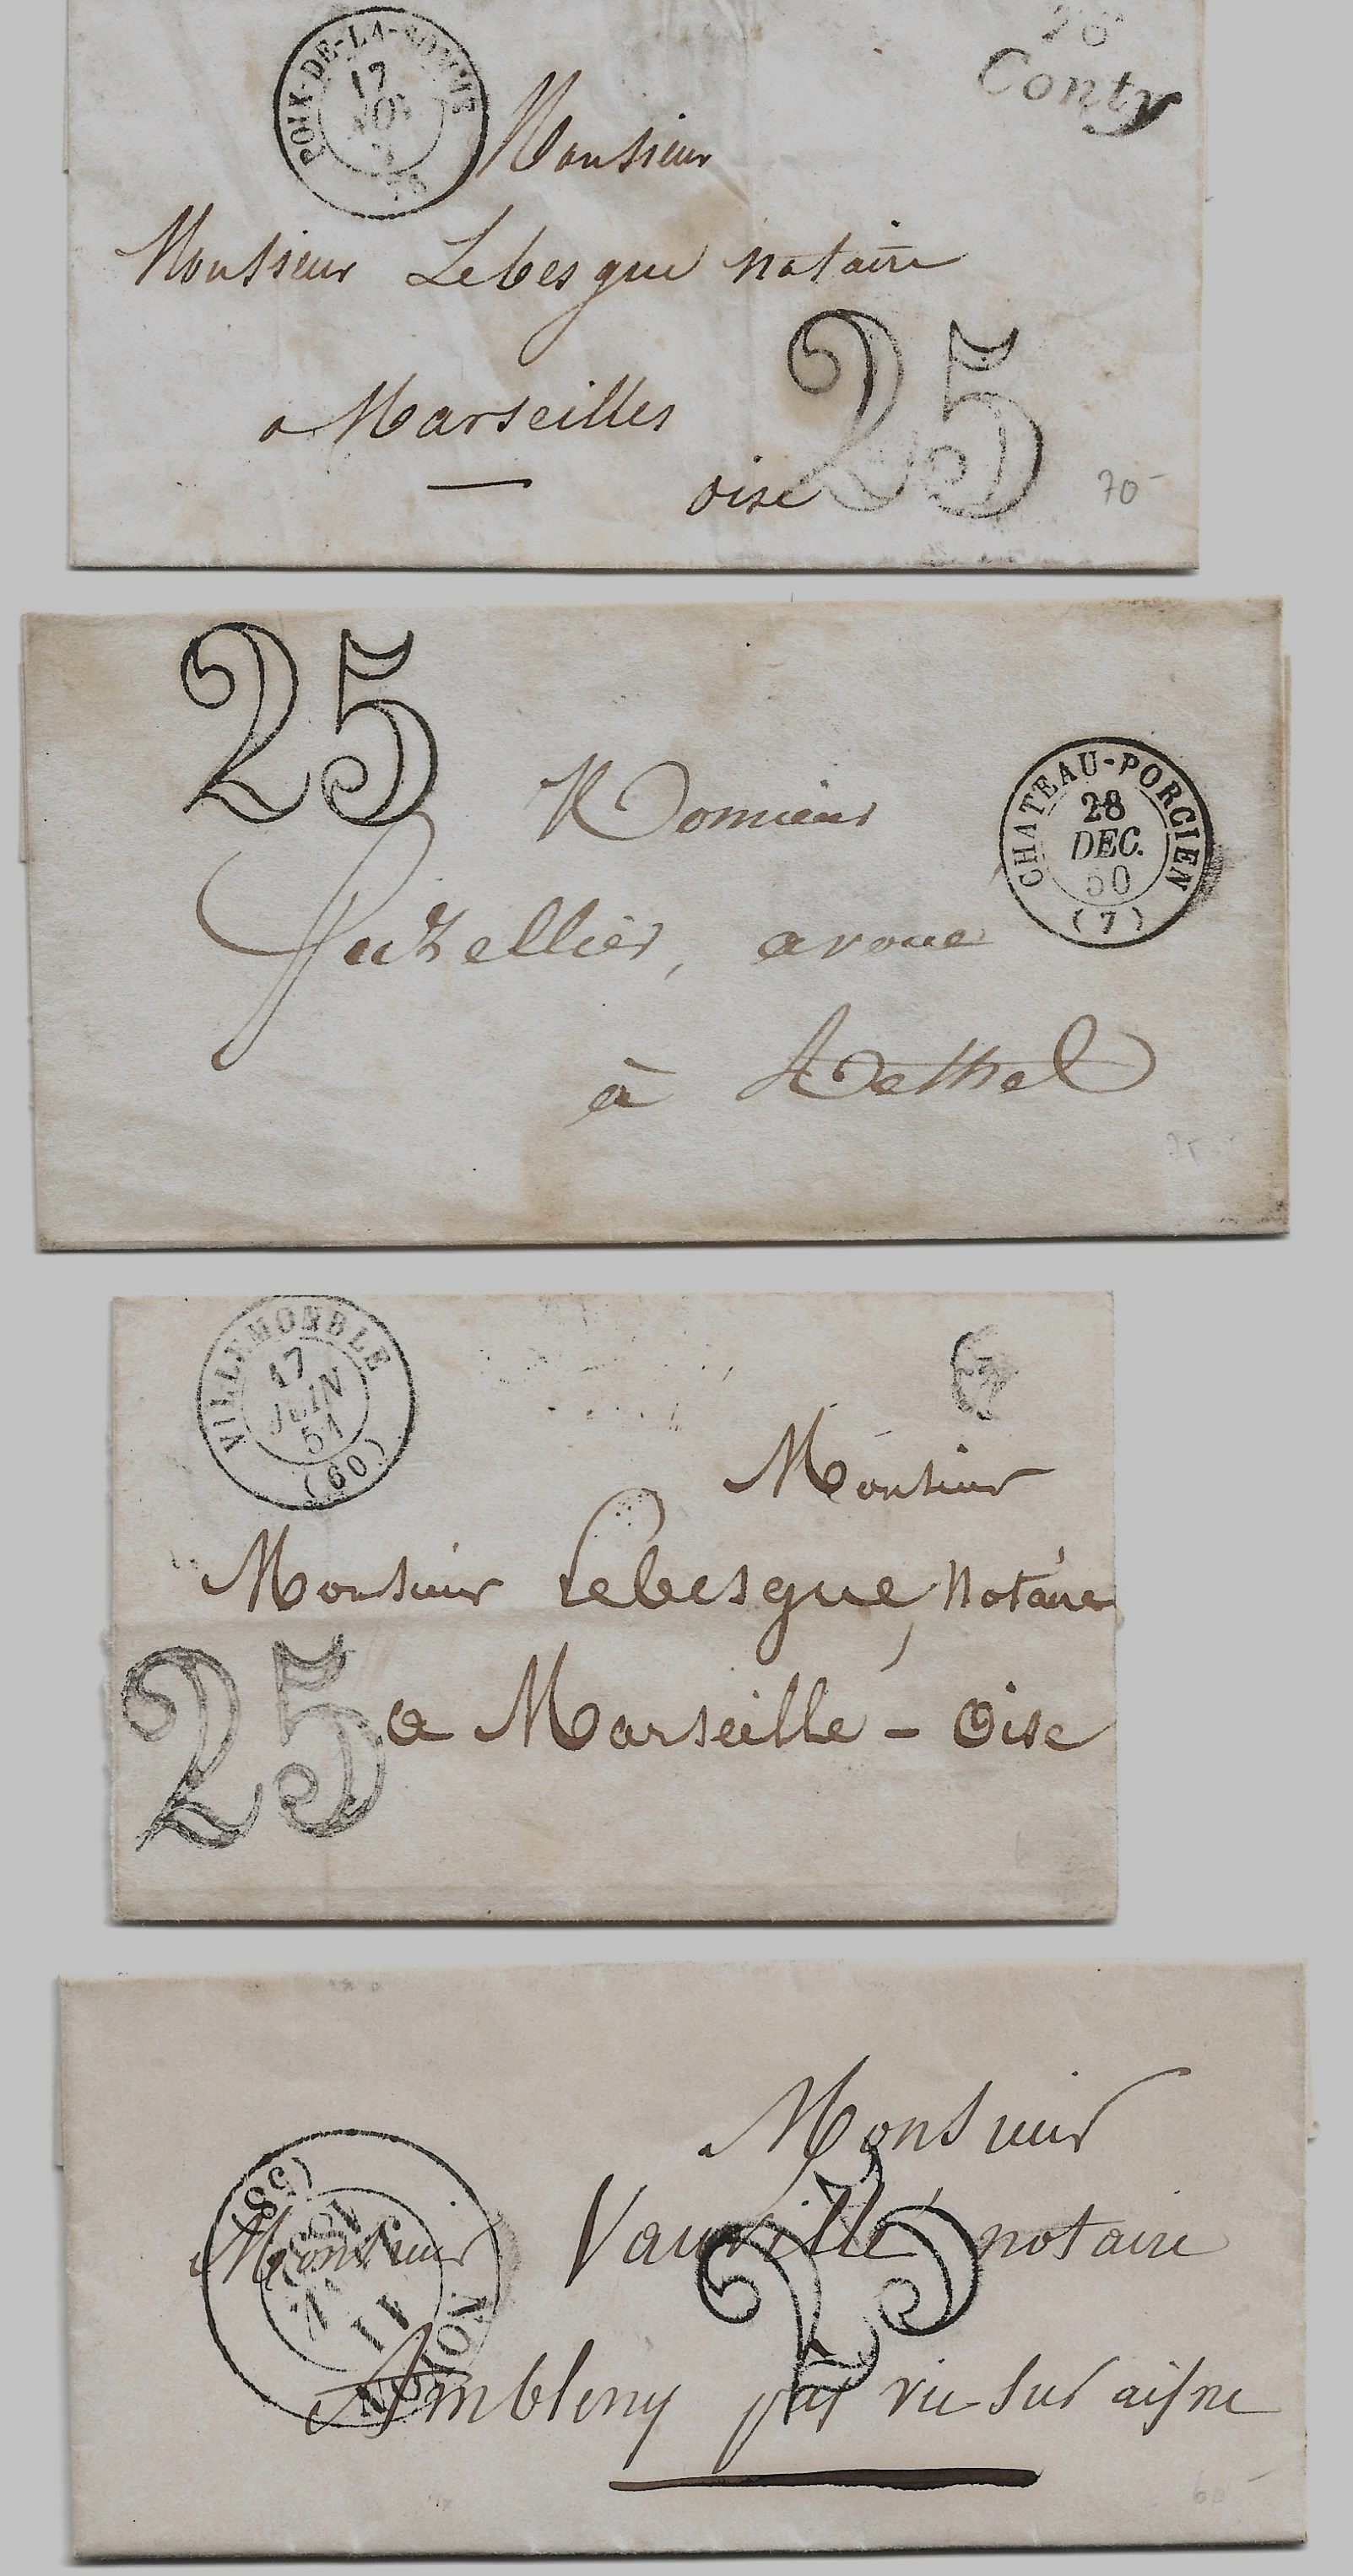 POIX-DE-LA-SOMME
17
NOV
76
Conty
Monsieur
Monsieur Lebesgue notaire
a Marseilles
oise
25
70-
25
Monsieur
CHATEAU-PORCIEN
28
DEC.
50
(7)
avoué
à Rethel
VILLEMOMBLE
17
JUIN
51
(60)
Monsieur
Monsieur Lebesgue, Notaire
25
a Marseille - Oise
Monsieur
Monsieur Vauvillé notaire
(58)
11
NOYON
25
Ambleny par vic sur aisne
60-